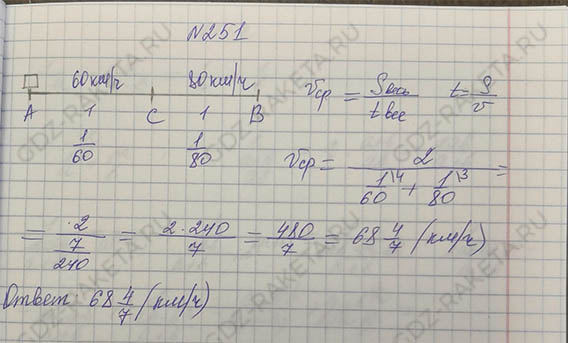 N251
60км/ч 80км/ч
A 1 C 1 B
1/60 1/80
Vср = Sвсь / tвсе t = S/v
Vср = 2 / (1/60\4 + 1/80\3) =
= 2 / (7/240) = 2·240/7 = 480/7 = 68 4/7 (км/ч)
Ответ 68 4/7 (км/ч)
GDZ-RAKETA.RU